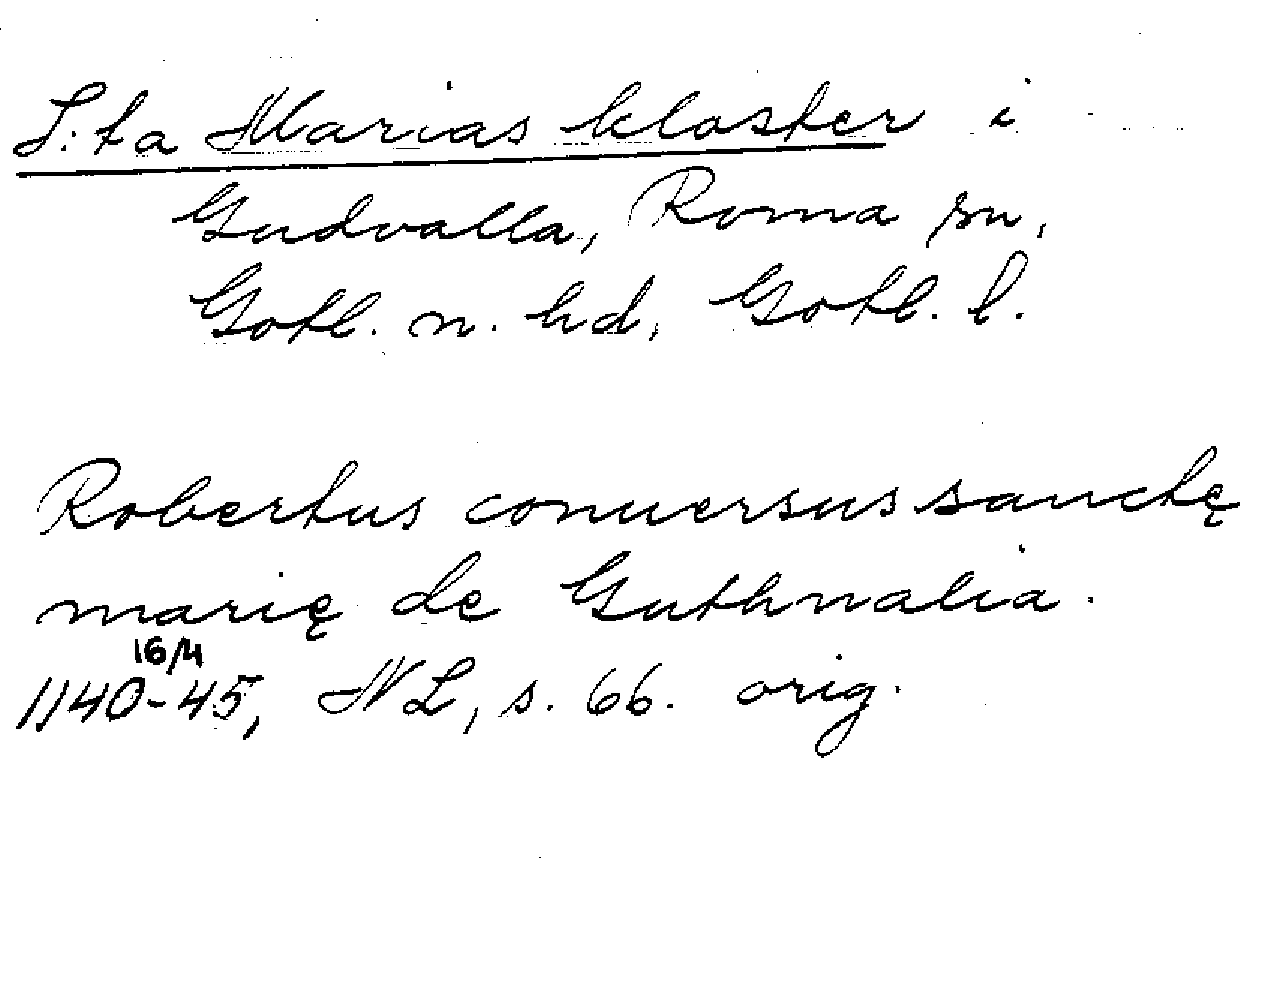 S:ta Marias kloster i
Gudvalla, Roma sn,
Gotl. n. hd, Gotl. l.
Robertus conuersus sanctę
marię de Guthnalia.
16/4
1140-45, NL, s. 66. orig.